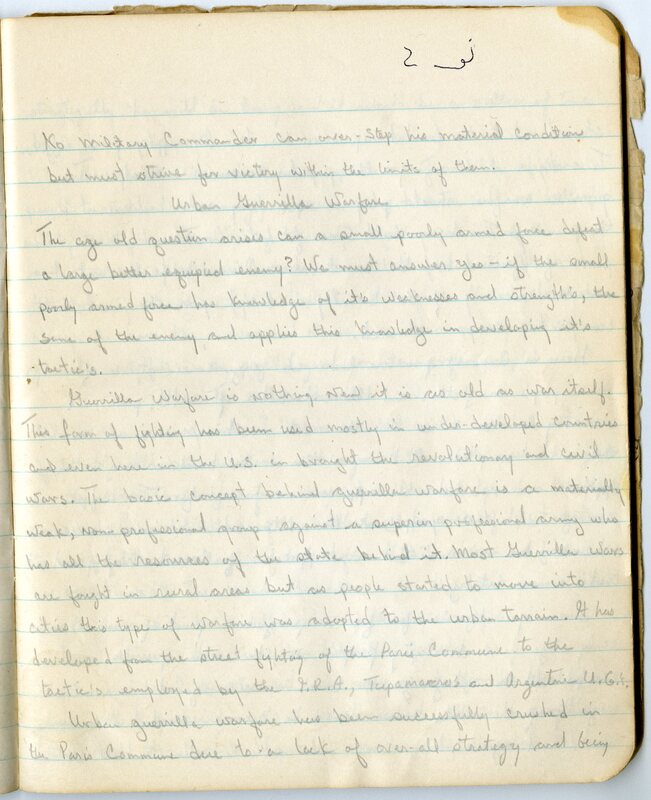 No Military Commander can over-step his material condition
but must strive for victory within the limits of them.
Urban Guerrilla Warfare
The age old question arises can a small poorly armed force defeat
a large better equipied enemy? We must answer yes - if the small
poorly armed force has knowledge of it's weaknesses and strength's, the
same of the enemy and applies this knowledge in developing it's
tactic's.
Guerrilla Warfare is nothing new it is as old as war itself.
This form of fighting has been used mostly in under-developed countries
and even here in the U.S. in the revolutionary and civil
wars. The basic concept behind guerrilla warfare is a materially
weak, non-professional group against a superior professional army who
has all the resources of the state behind it. Most Guerrilla Wars
are fought in rural areas but as people started to move into
cities this type of warfare was adopted to the urban terrain. It has
developed from the street fighting of the Paris Commune to the
tactic's employed by the I.R.A., Tupamaros and Argentine
Urban guerrilla warfare has been successfully crushed in
the Paris Commune due to a lack of over-all strategy and being